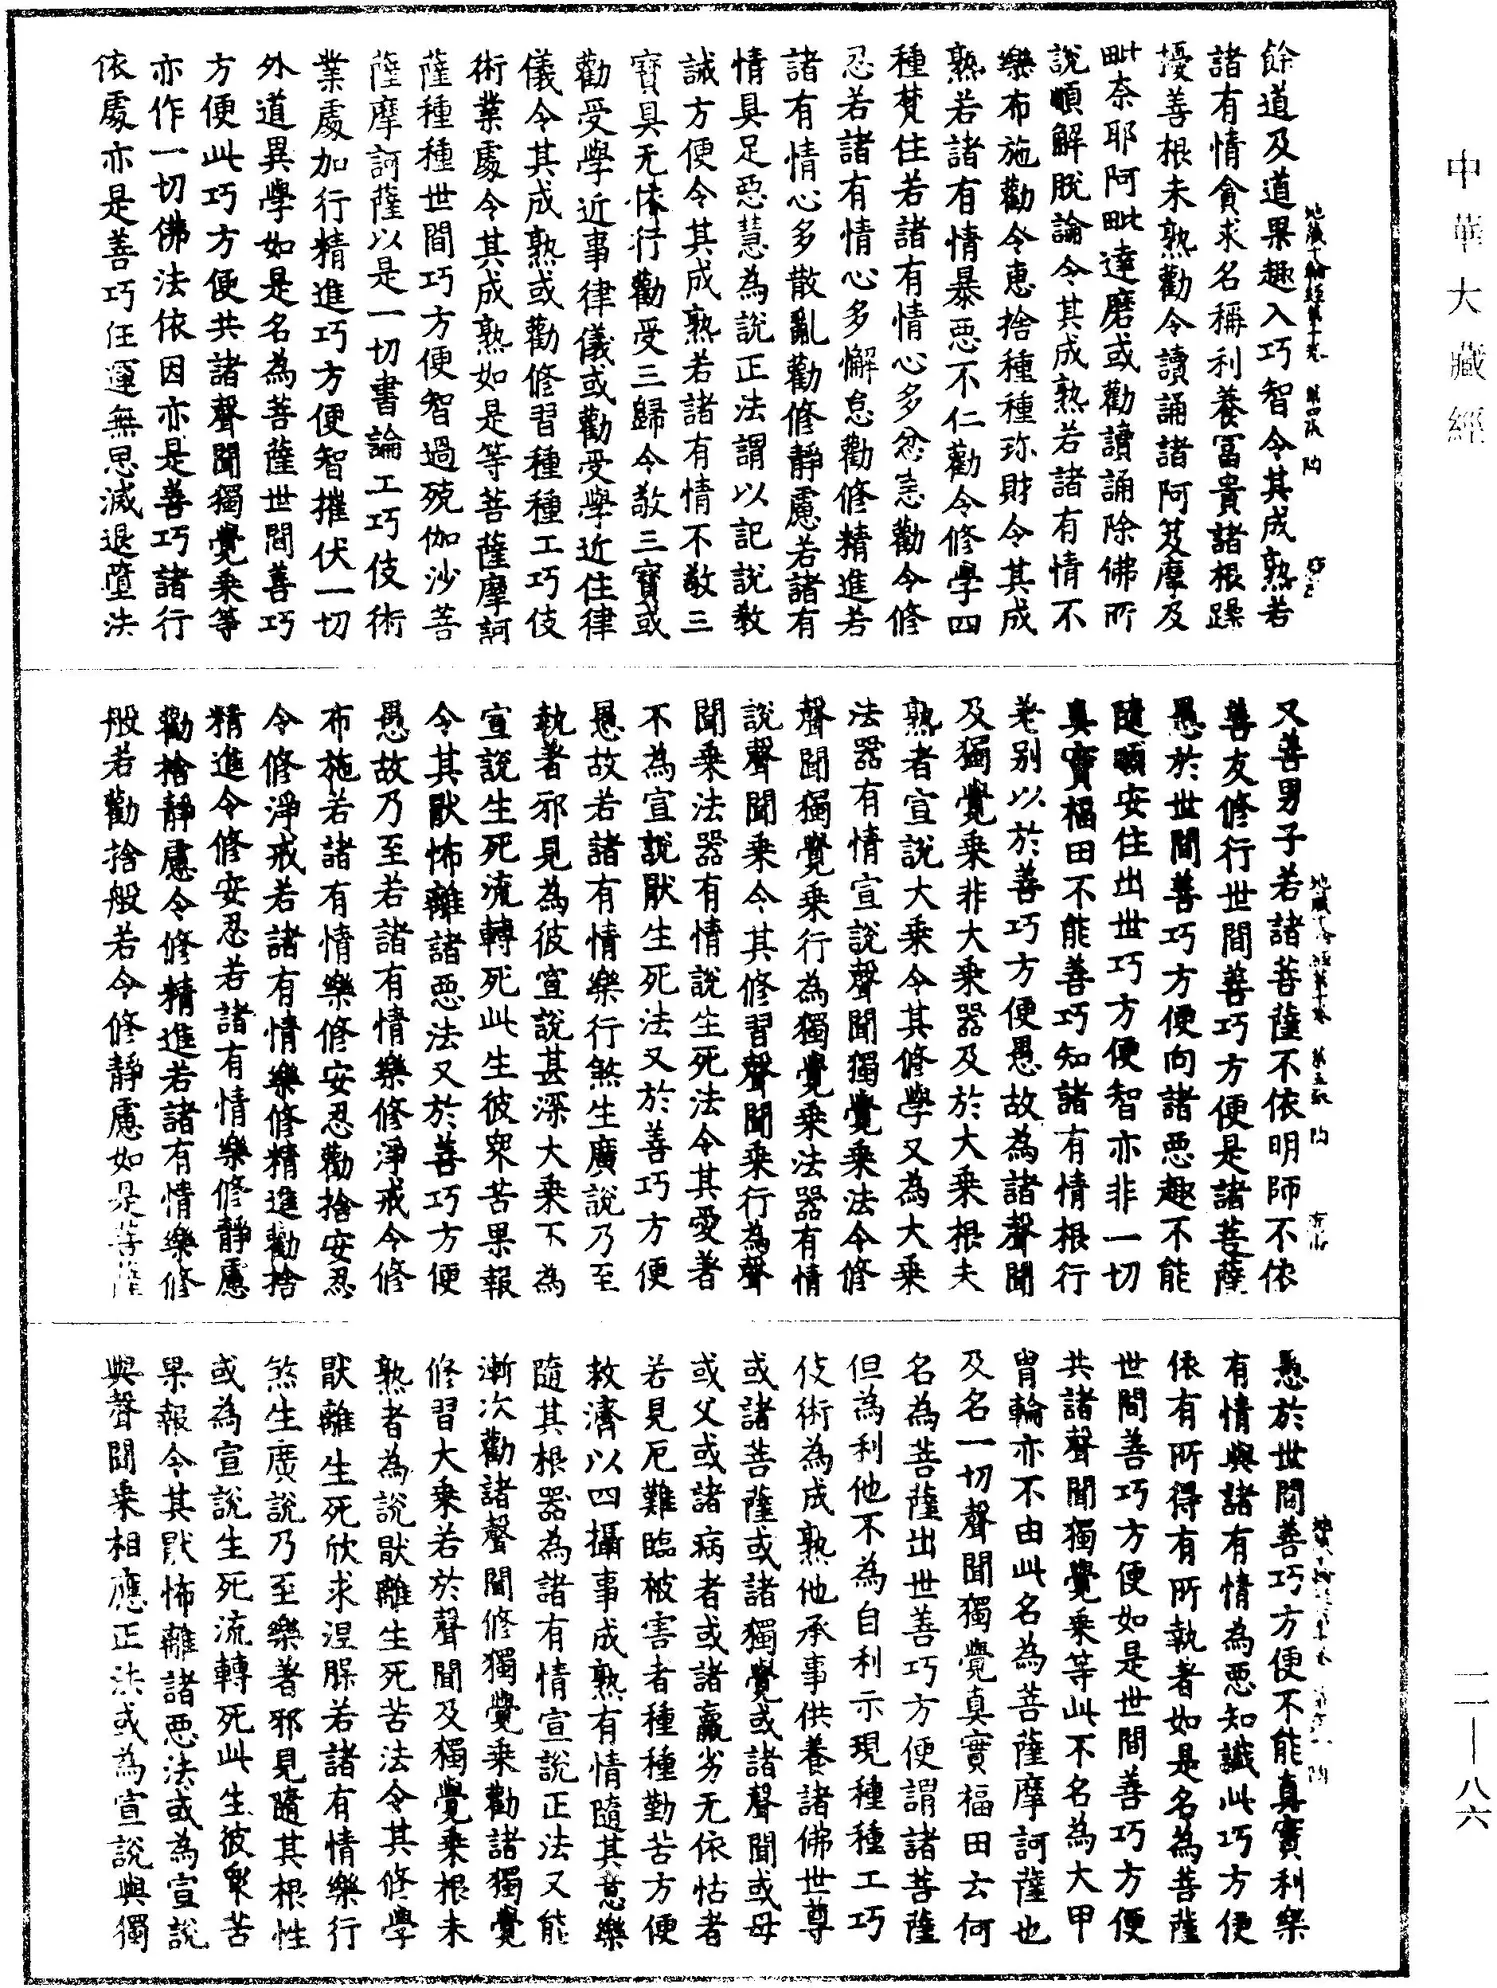 中華大藏經
一一—八六
餘道及道果趣入巧智令其成熟若
諸有情貪求名稱利養富貴諸根躁
擾善根未熟勸令讀誦諸阿笈摩及
毗奈耶阿毗達磨或勸讀誦除佛所
說順解脫論令其成熟若諸有情不
樂布施勸令惠捨種種珎財令其成
熟若諸有情暴惡不仁勸令修學四
種梵住若諸有情心多忿恚勸令修
忍若諸有情心多懈怠勸修精進若
諸有情心多散亂勸修靜慮若諸有
情具足惡慧為說正法謂以記說教
誡方便令其成熟若諸有情不敬三
寶具无依行勸受三歸令敬三寶或
勸受學近事律儀或勸受學近住律
儀令其成熟或勸修習種種工巧伎
術業處令其成熟如是等菩薩摩訶
薩種種世間巧方便智過殑伽沙菩
薩摩訶薩以是一切書論工巧伎術
業處加行精進巧方便智摧伏一切
外道異學如是名為菩薩世間善巧
方便此巧方便共諸聲聞獨覺乘等
亦作一切佛法依因亦是善巧諸行
依處亦是善巧任運無思滅退墮法
又善男子若諸菩薩不依明師不依
善友修行世間善巧方便是諸菩薩
愚於世間善巧方便向諸惡趣不能
隨順安住出世巧方便智亦非一切
真實福田不能善巧知諸有情根行
差別以於善巧方便愚故為諸聲聞
及獨覺乘非大乘器及於大乘根夫
熟者宣說大乘令其修學又為大乘
法器有情宣說聲聞獨覺乘法令修
聲聞獨覺乘行為獨覺乘法器有情
說聲聞乘令其修習聲聞乘行為聲
聞乘法器有情說生死法令其愛著
不為宣說猒生死法又於善巧方便
愚故若諸有情樂行煞生廣說乃至
執著邪見為彼宣說甚深大乘不為
宣說生死流轉死此生彼衆苦果報
令其猒怖離諸惡法又於善巧方便
愚故乃至若諸有情樂修淨戒令修
布施若諸有情樂修安忍勸捨安忍
令修淨戒若諸有情樂修精進勸捨
精進令修安忍若諸有情樂修靜慮
勸捨靜慮令修精進若諸有情樂修
般若勸捨般若令修靜慮如是菩薩
愚於世間善巧方便不能真實利樂
有情與諸有情為惡知識此巧方便
依有所得有所執著如是名為菩薩
世間善巧方便如是世間善巧方便
共諸聲聞獨覺乘等此不名為大甲
冑輪亦不由此名為菩薩摩訶薩也
及名一切聲聞獨覺真實福田云何
名為菩薩出世善巧方便謂諸菩薩
但為利他不為自利示現種種工巧
伎術為成熟他承事供養諸佛世尊
或諸菩薩或諸獨覺或諸聲聞或母
或父或諸病者或諸羸劣无依怙者
若見厄難臨被害者種種勤苦方便
救濟以四攝事成熟有情隨其意樂
隨其根器為諸有情宣說正法又能
漸次勸諸聲聞修獨覺乘勸諸獨覺
修習大乘若於聲聞及獨覺乘根未
熟者為說猒離生死苦法令其修學
猒離生死欣求涅槃若諸有情樂行
煞生廣說乃至樂著邪見隨其根性
或為宣說生死流轉死此生彼衆苦
果報令其猒怖離諸惡法或為宣說
與聲聞乘相應正法或為宣說與獨